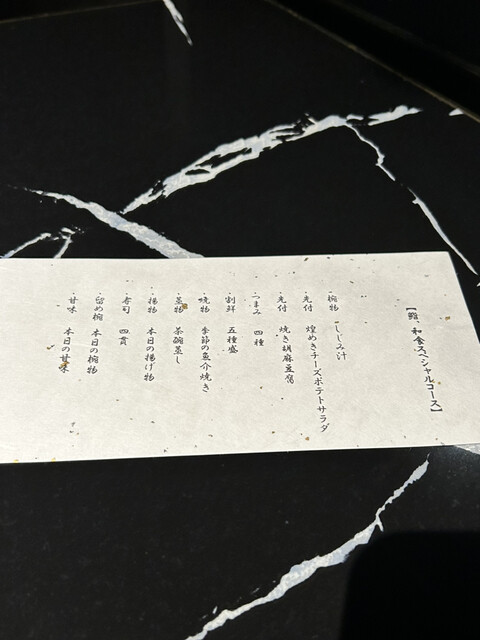 【鮨 和食スペシャルコース】
・椀物 しじみ汁
・先付 煌めきチーズポテトサラダ
・先付 焼き胡麻豆腐
・つまみ 四種
・割鮮 五種盛
・焼物 季節の魚介焼き
・蒸物 茶碗蒸し
・揚物 本日の揚げ物
・寿司 四貫
・留め椀 本日の椀物
・甘味 本日の甘味